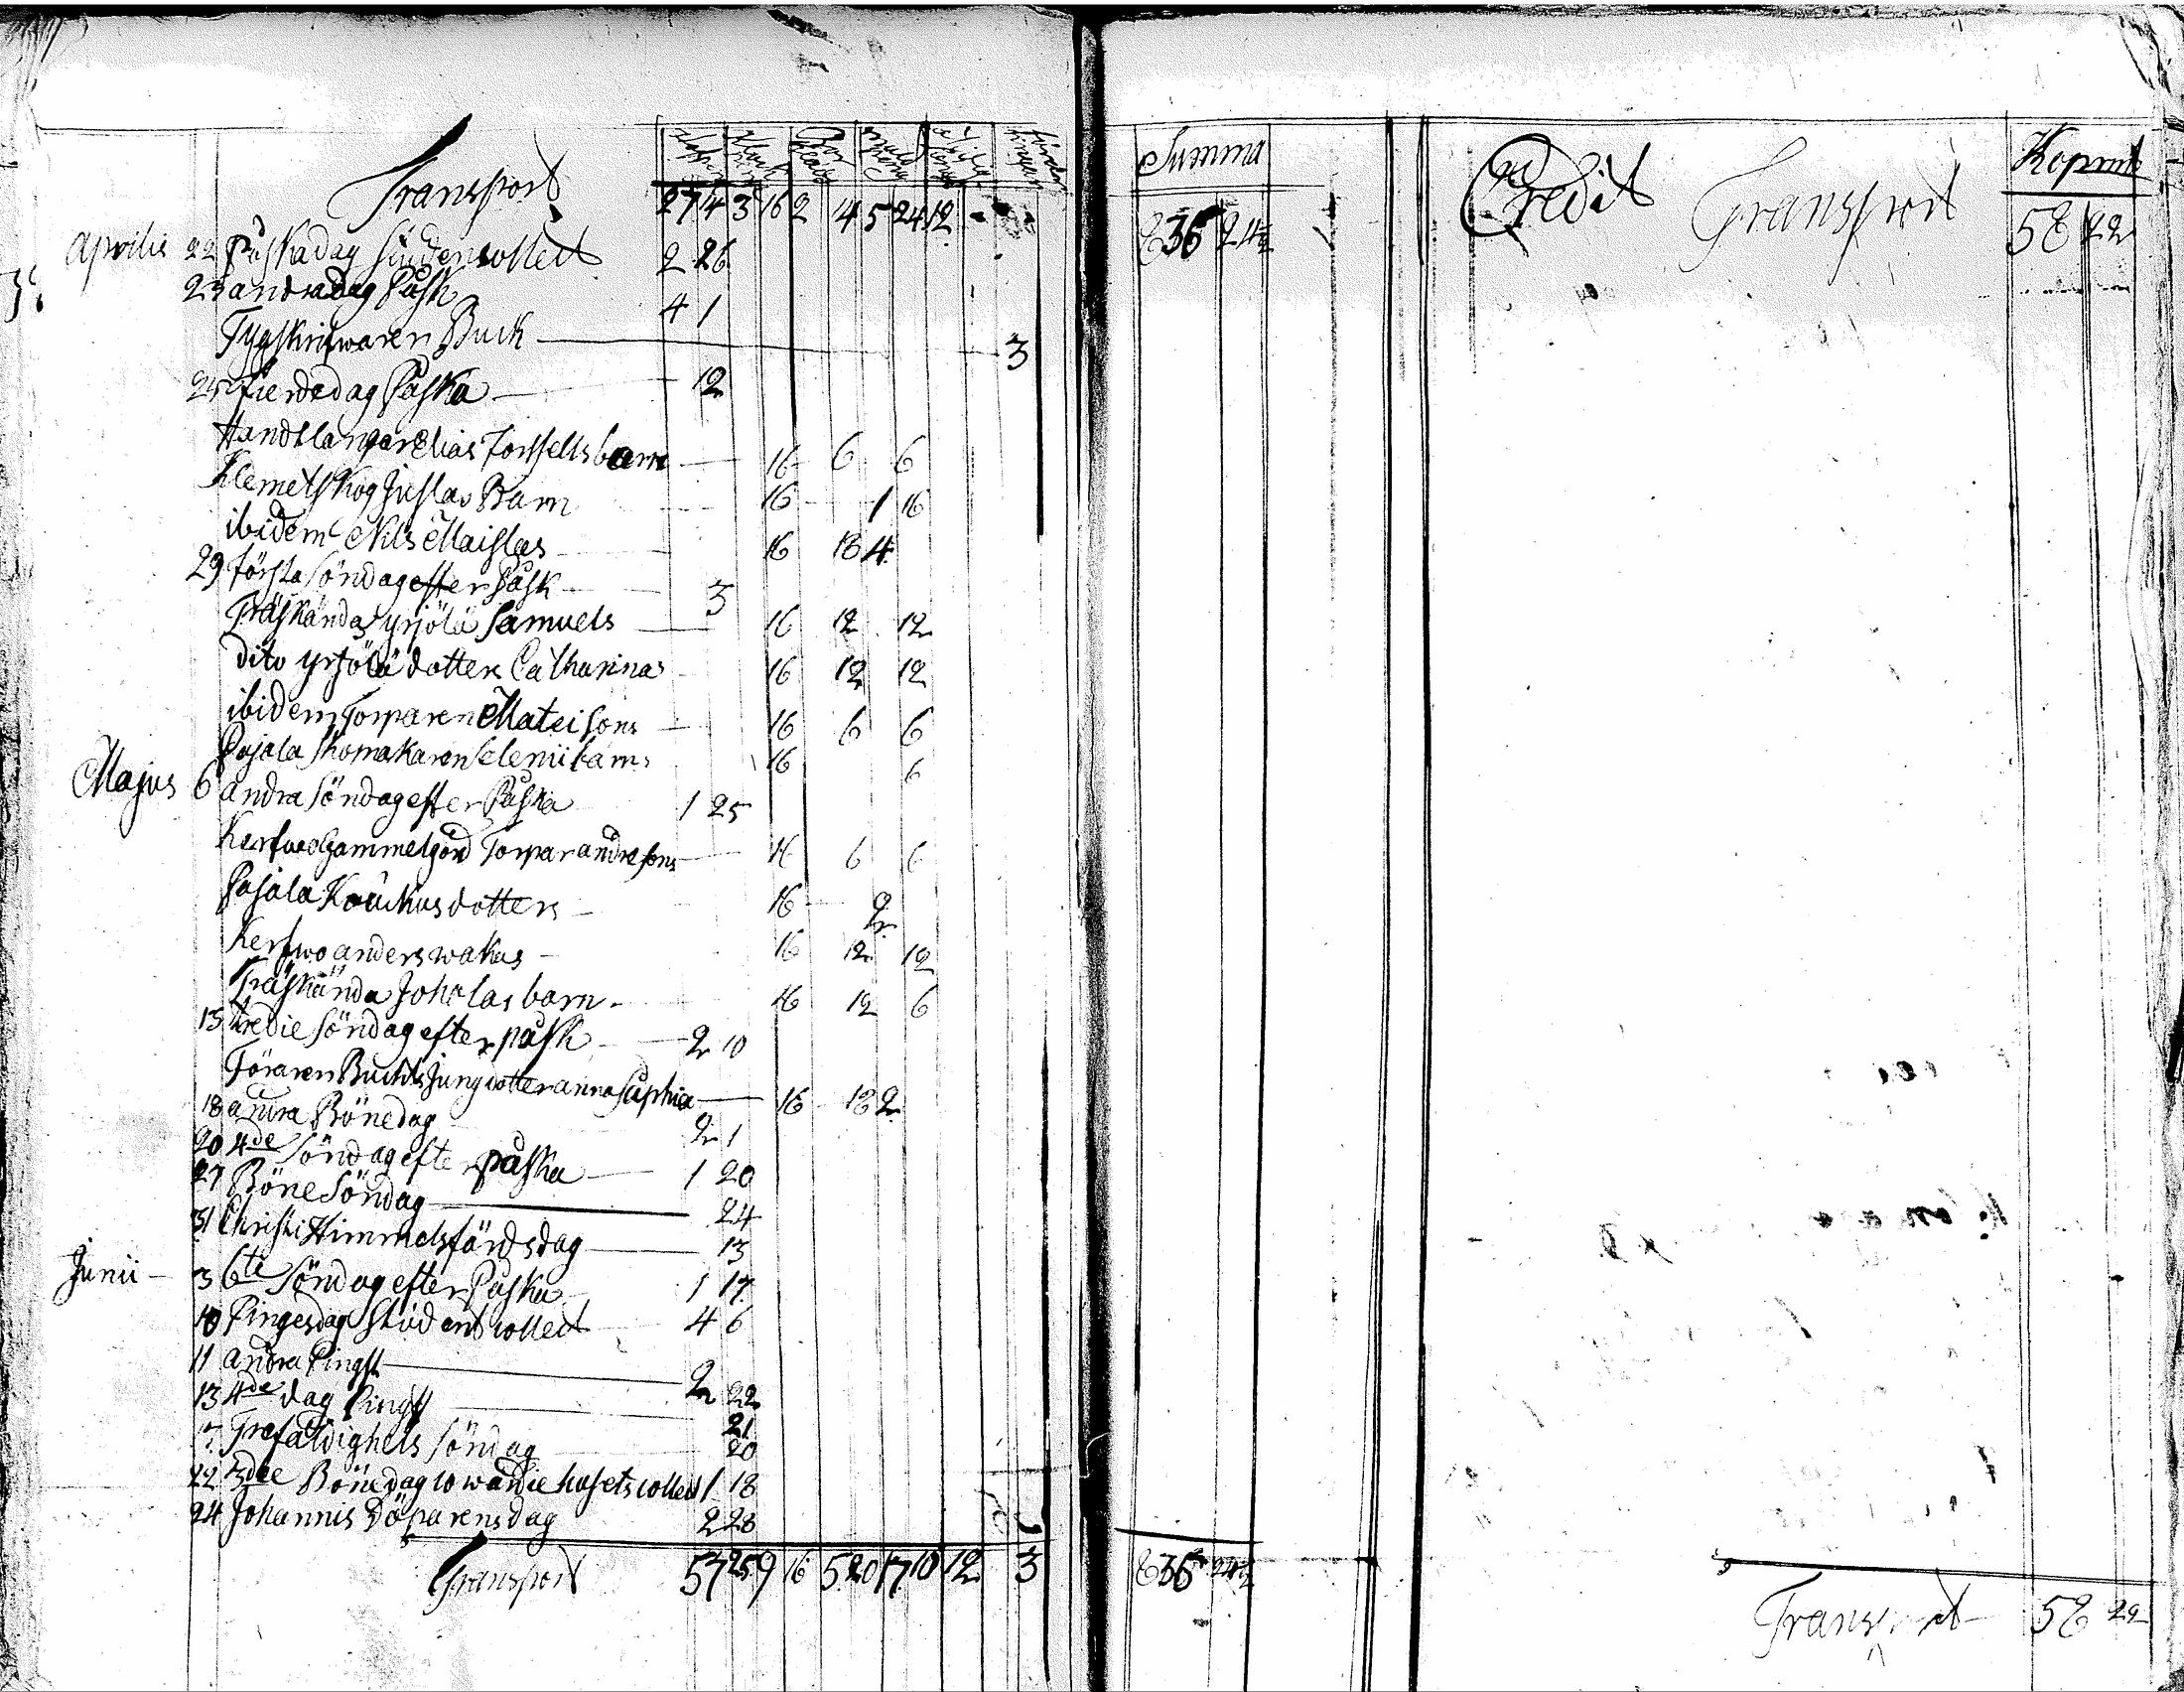 Transport 27 4 3 16 2 4 5 24 12 -
Aprilis 22 Påskadag Studentcollect 2 26
23 andradag Påsk 4 1
Tygskrifwaren Buck 3
25 fierdedag Påska 12
Handtlangar Elias Forssells barn 16 6 6
Klemetskog Jussas Barn 16 1 16
ibidem Nils Maislas 16 18 4
29 första Söndag efter Påsk 3
Träskända yrjölä Samuels 16 12 12
dito yrjölä dotters Catharinas 16 12 12
ibidem Torparen Matei sons 16 6 6
Pajala Skomakaren Selenii barns 16 6
Majus 6 andra Söndag efter Påska 1 25
Kerfwo Gammelgård Torpar andr sons 16 6 6
Pajala Kouckus dotters 16 2
Kerfwo anders wakas 16 12 12
Träskända Joholas barn 16 12 6
13 tredie Söndag efter påsk 2 10
Föraren Buchts Jungdotter anna Saphia 16 18 2
18 andra Bönedag 2 1
20 4de Söndag efter påska 1 20
27 Böne Söndag 24
31 Christi Himmelsfärds dag 13
Junii 3 6te Söndag efter Påska 1 17
10 Pingesdag Student collect 4 6
11 andra Pingst 2 22
13 4de dag Pingst 21
Trefaldighets Söndag 20
22 3die Bönedag collect 1 18
24 Johannis Döparens dag 2 28
Transport 57 25 9 16 5 20 17 10 12 3
Summa
836 24½
836 24½
Credit Transport
Koprmt
58 22
Transport 58 22